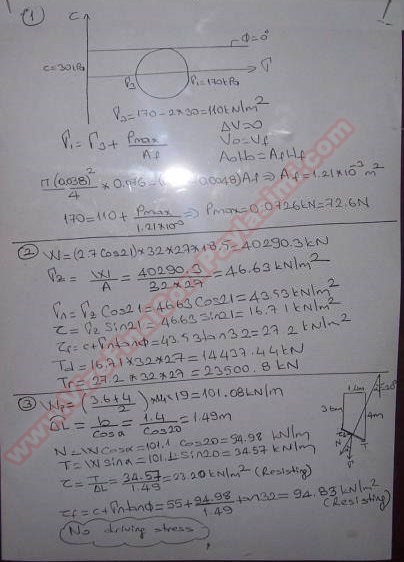 ①
C
Φ=0°
C=30kPa
σ
σ3
σ1=170kPa
σ3=170-2×30=110kN/m²
ΔV=0
V0=Vf
A0H0=AfHf
σ1=σ3+Pmax/Af
π(0.038)²/4 ×0.076-( 0.0048)Af⇒Af=1.21×10⁻³m²
170=110+Pmax/1.21×10⁻³⇒Pmax=0.0726kN=72.6N
② W=(2.7cos21)×32×27×18.5=40290.3kN
σz=W/A=40290.3/32×27=46.63kN/m²
σn=σz cos21=46.63cos21=43.53kN/m²
τ=σz sin21=46.63sin21=16.71kN/m²
τf=c+σntanΦ=43.53tan32=27.2kN/m²
Td=16.71×32×27=14437.44kN
Tr=27.2×32×27=23500.8kN
③ Wp=(3.6+4/2)×1.4×19=101.08kN/m
ΔL=b/cosα=1.4/cos20=1.49m
N=Wcosα=101.1cos20=94.98kN/m
T=Wsinα=101.1sin20=34.57kN/m
τ=T/ΔL=34.57/1.49=23.20kN/m² (Resisting)
τf=c+σntanΦ=55+94.98/1.49 tan32=94.83kN/m²
(Resisting)
No driving stress
1.4m
20°
3.6m
4m
N
T